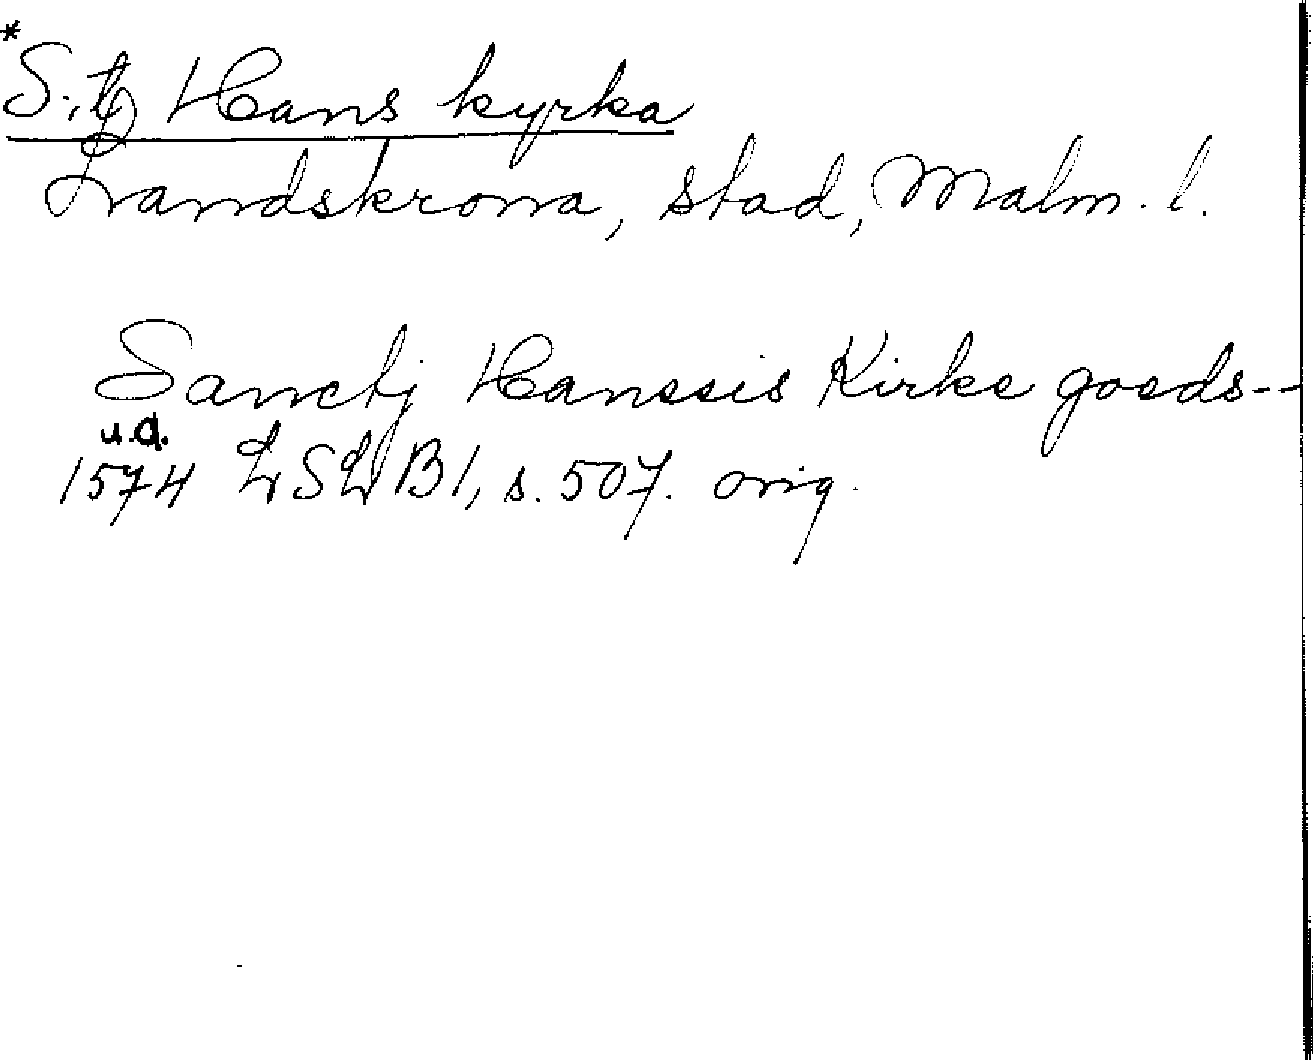 *S:t Hans kyrka
Landskrona, stad, Malm. l.
Sanctj Hanssis Kirke goeds--
u.a.
1574 LSLB1, s. 507. orig.